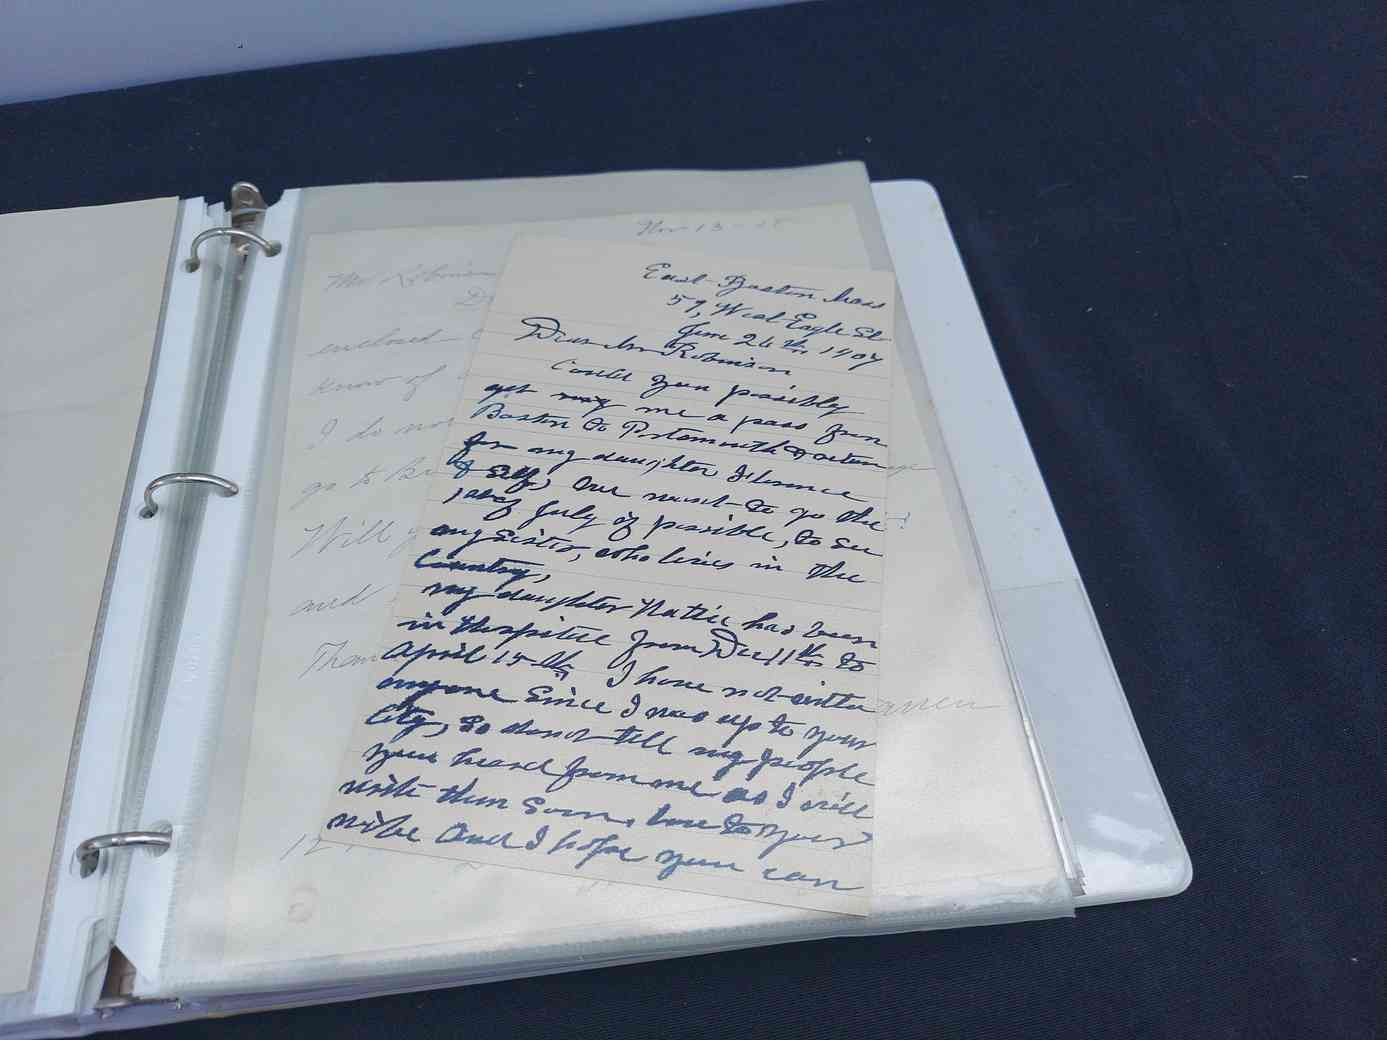 East Boston Mass
57, West Eagle St
June 26th 1907
Dear Mr Robinson
Could you possibly
get me a pass from
Boston to Portsmouth & return
for my daughter Florence
& self, we want to go the
1st of July if possible, to see
my sister, who lives in the
Country,
my daughter Hattie has been
in Hospital from Dec 11th to
April 15th I have not written
anyone since I was up to your
City, so do not tell my people
you heard from me as I will
write them soon, love to your
wife and I hope you can
Nov 13
Mr Robinson
enclosed
know of
I do not
go to
Will
and